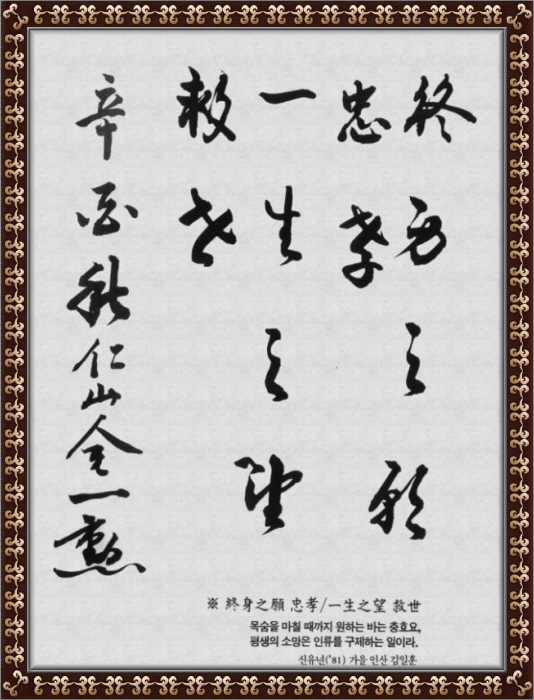 終身之願
忠孝
一生之望
救世
辛酉秋仁山金一勳
※ 終身之願 忠孝/一生之望 救世
목숨을 마칠 때까지 원하는 바는 충효요,
평생의 소망은 인류를 구제하는 일이라.
신유년('81) 가을 인산 김일훈